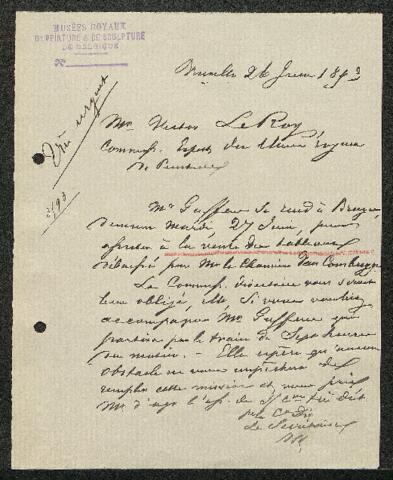 MUSÉES ROYAUX
DE PEINTURE & DE SCULPTURE
DE BELGIQUE
N°
Bruxelles 26 Juin 1893
Très urgent
Mr Victor Le Roy,
Commiss. Expert des Musées royaux
de Peinture
Mr Gauffens se rend à Bruges,
demain mardi, 27 Juin, pour
assister à la vente des tableaux
délaissés par Mr le chanoine Van
La Commiss. directrice vous serait
bien obligé, Mr, si vous vouliez
accompagner Mr qui
partira par le train de Sept heures
du matin. - Elle espère qu'aucun
obstacle ne vous empêchera de
remplir cette mission et vous prie
Mr d'agr. l'ass. de
Le Secrétaire